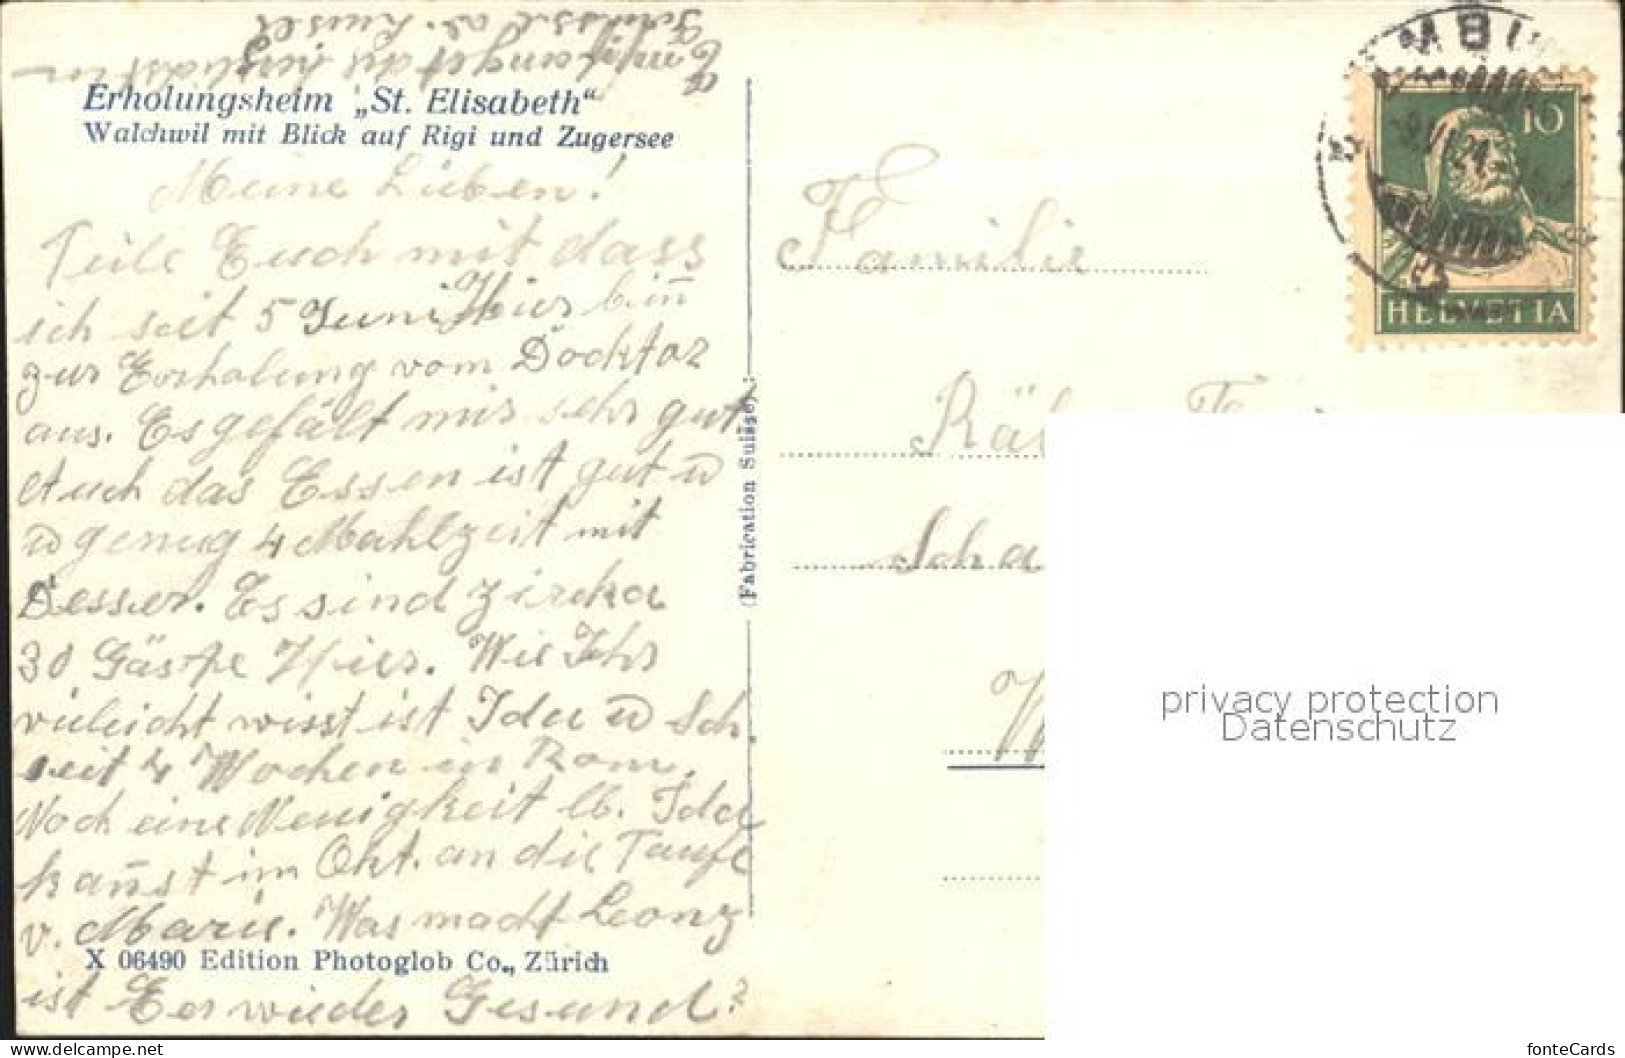 Erholungsheim „St. Elisabeth“
Walchwil mit Blick auf Rigi und Zugersee
Meine Lieben!
Teile Euch mit dass
ich seit 5 Juni Hier bin̄
zur Erholung vom Docktor
aus. Es gefält mir sehr gut
Auch das Essen ist gut u
u genug 4 Mahlzeit mit
Desser. Es sind zirka
30 Gäste Hier. Wie Ihr
vieleicht wisst ist Ida u Sch.
seit 4 Wochen in Rom.
Noch eine Neuigkeit lb. Ida
kan̄st im Okt. an die Taufe
v. Marie. Was macht Leonz
X 06490 Edition Photoglob Co., Zürich
ist Er wieder Gesund?
Empfanget die herzlichsten
(Fabrication Suisse)
Familie
Sch
HELVETIA
10
privacy protection
Datenschutz
delcampe.net
fonteCards